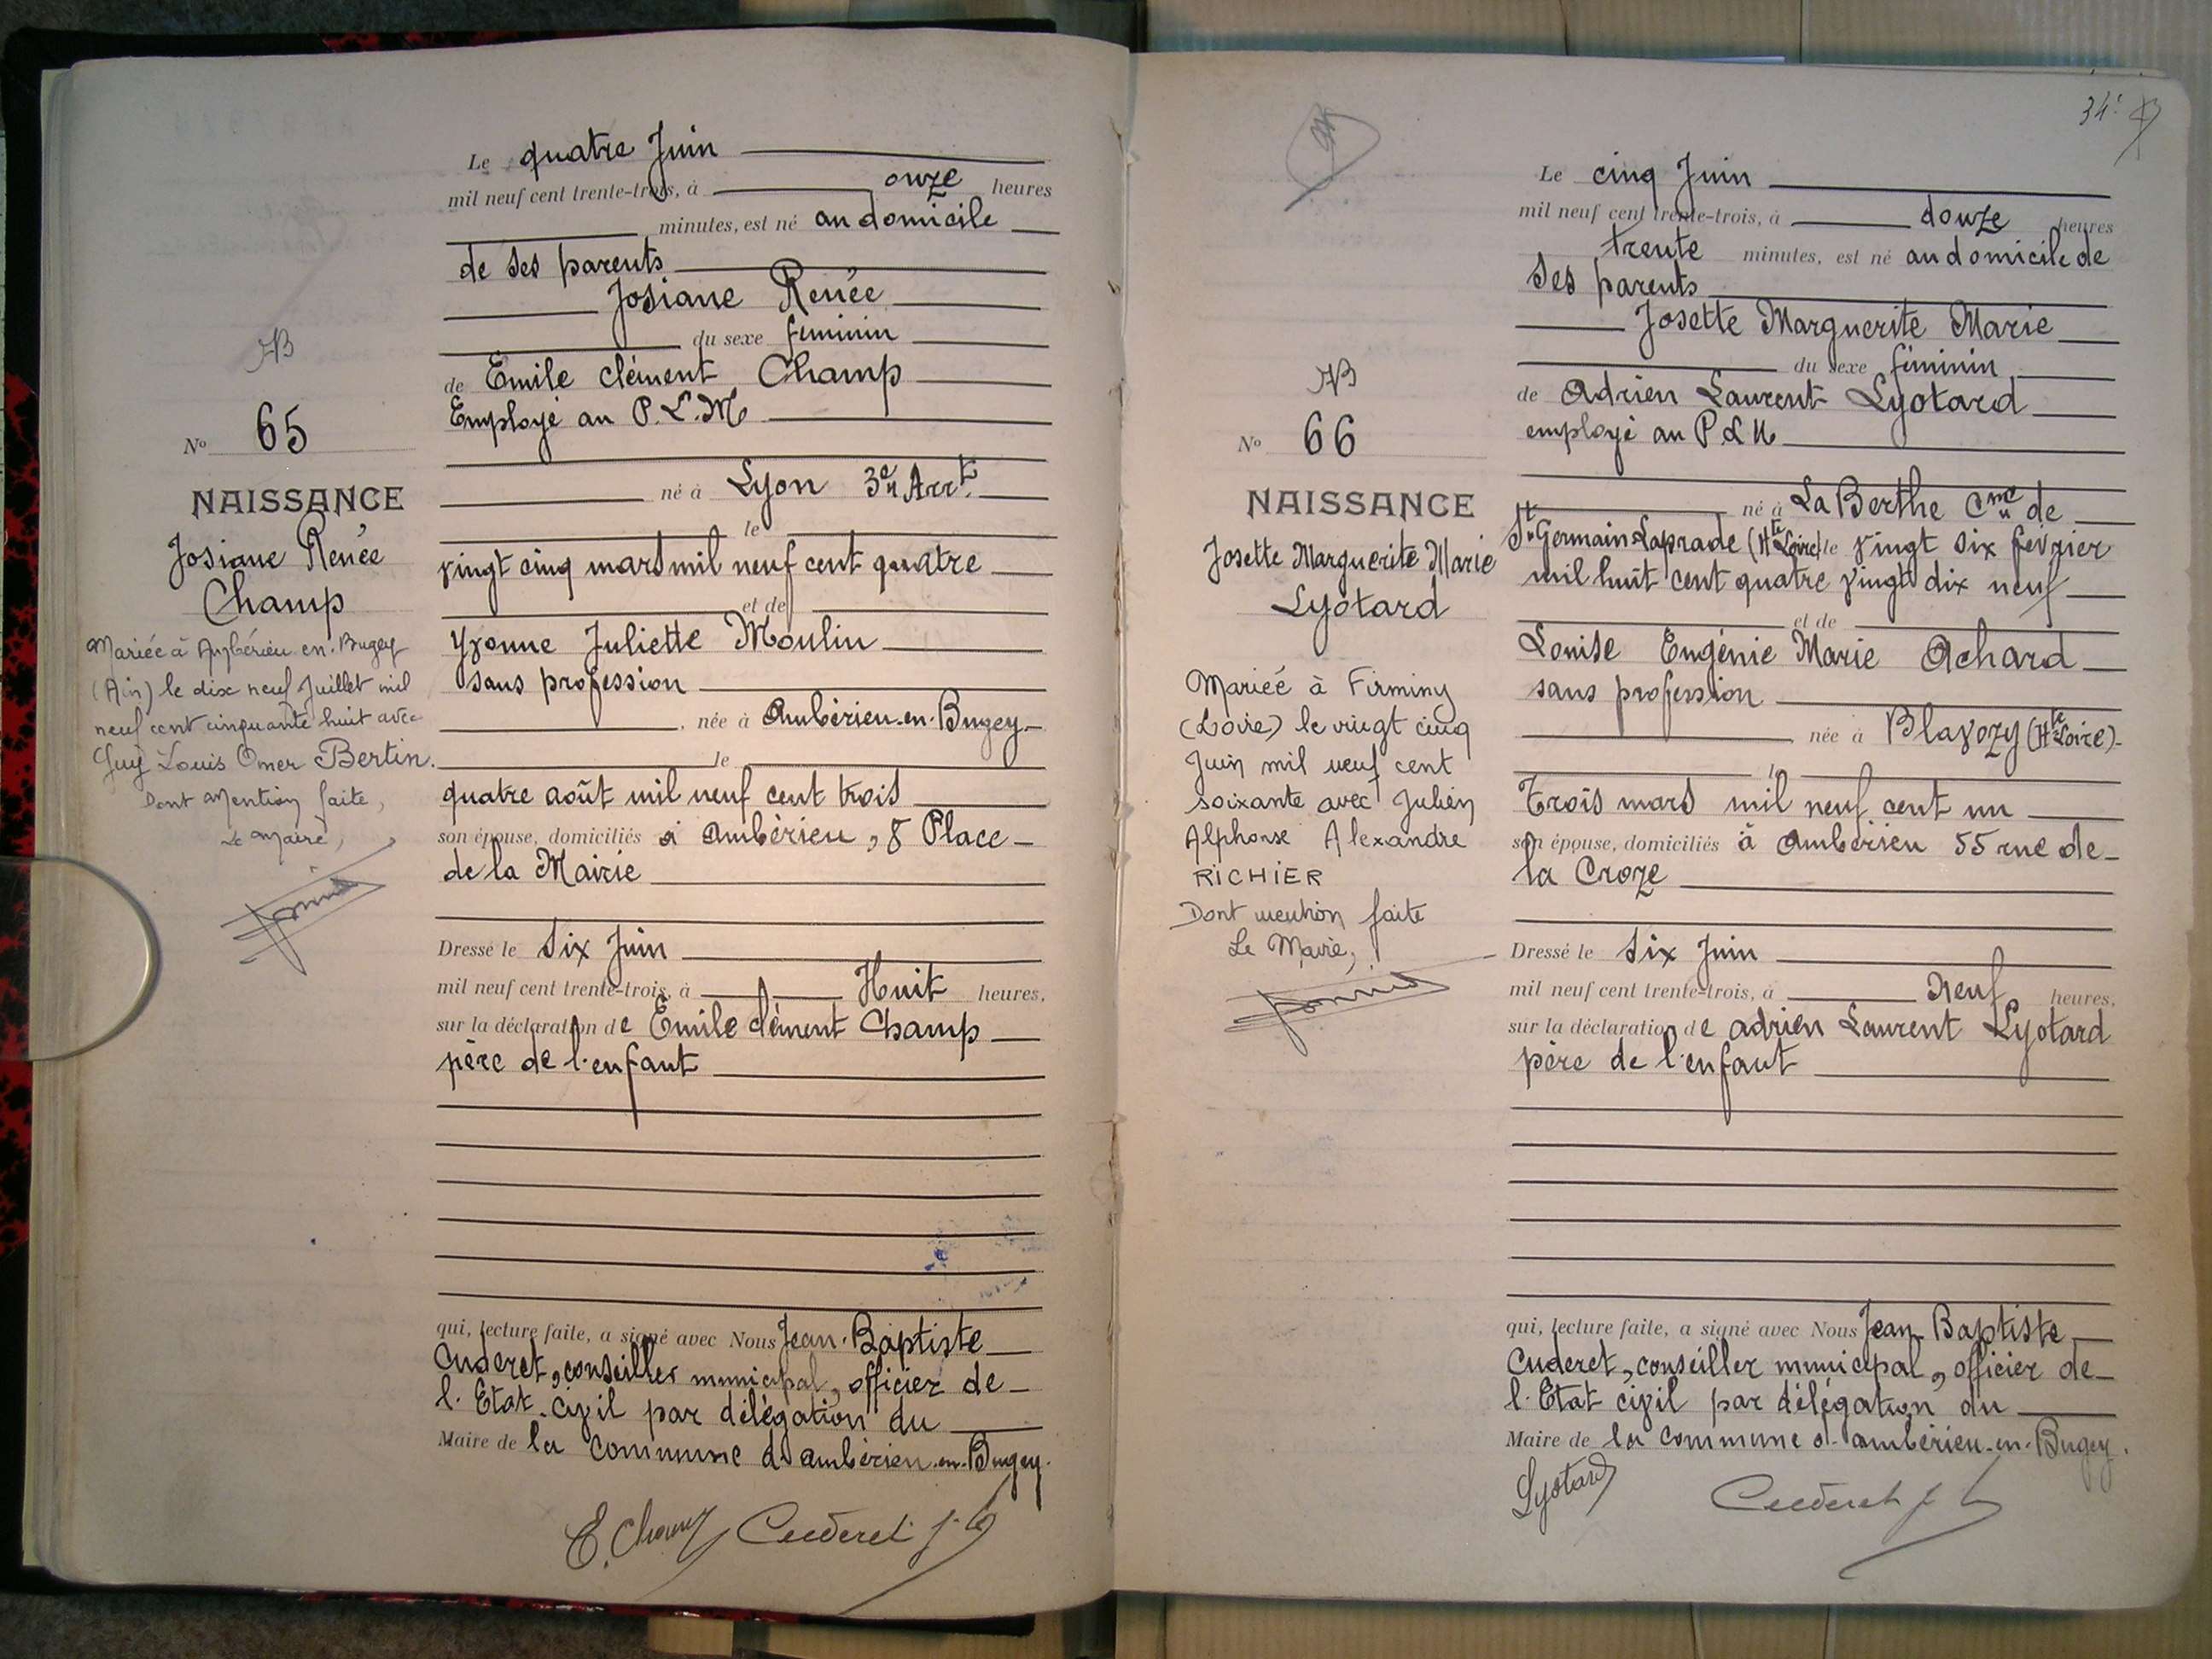 Le quatre Juin
mil neuf cent trente-trois, à onze heures
minutes, est né au domicile
de ses parents
Josiane Renée
du sexe feminin
de Emile clément Champ
Employé au P.L.M
né à Lyon 3e Arrt.
le
vingt cinq mars mil neuf cent quatre
et de
Yvonne Juliette Moulin
sans profession
née à Ambérieu-en-Bugey
le
quatre août mil neuf cent trois
son épouse, domiciliés à Ambérieu, 8 Place
de la Mairie
Dressé le Six Juin
mil neuf cent trente-trois, à Huit heures,
sur la déclaration de Emile clément Champ
père de l'enfant
qui, lecture faite, a signé avec Nous Jean-Baptiste
Cuderet, conseiller municipal, officier de
l'Etat-civil par délégation du
Maire de la commune d'Ambérieu-en-Bugey.
E. Champ Cuderet J. B
AB
No 65
NAISSANCE
Josiane Renée
Champ
Mariée à Ambérieu-en-Bugey
(Ain) le dix neuf Juillet mil
neuf cent cinquante huit avec
Guy Louis Omer Bertin.
Dont Mention faite,
Le Maire,
34
Le cinq Juin
mil neuf cent trente-trois, à douze heures
trente minutes, est né au domicile de
ses parents
Josette Marguerite Marie
du sexe féminin
de Adrien Laurent Lyotard
employé au P.L.M
né à La Berthe Cme de
St Germain-Laprade (Hte Loire) le vingt six février
mil huit cent quatre vingt dix neuf
et de
Louise Eugénie Marie Achard
sans profession
née à Blavozy (Hte Loire)
le
Trois mars mil neuf cent un
son épouse, domiciliés à Ambérieu 55 rue de
la Croze
Dressé le Six Juin
mil neuf cent trente-trois, à Neuf heures,
sur la déclaration de Adrien Laurent Lyotard
père de l'enfant
qui, lecture faite, a signé avec Nous Jean-Baptiste
Cuderet, conseiller municipal, officier de
l'Etat civil par délégation du
Maire de la commune d'Ambérieu-en-Bugey.
Lyotard Cuderet J. B
AB
No 66
NAISSANCE
Josette Marguerite Marie
Lyotard
Mariée à Firminy
(Loire) le vingt cinq
Juin mil neuf cent
soixante avec Julien
Alphonse Alexandre
RICHIER
Dont mention faite
Le Maire,